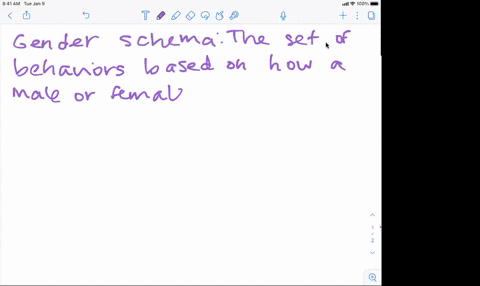 8:41 AM Tue Jan 9
100%
Gender schema: The set of
behaviors based on how a
male or femal
1
2